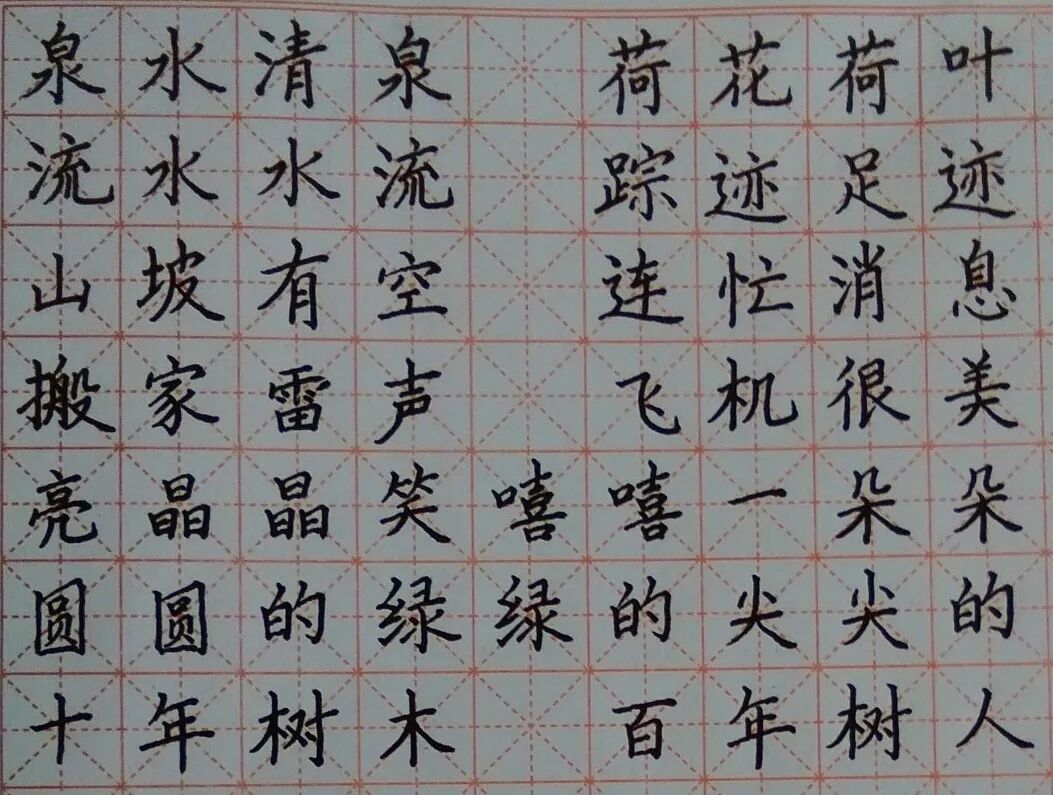 泉水清泉 荷花荷叶
流水水流 踪迹足迹
山坡有空 连忙消息
搬家雷声 飞机很美
亮晶晶笑嘻嘻一朵朵
圆圆的绿绿的尖尖的
十年树木 百年树人